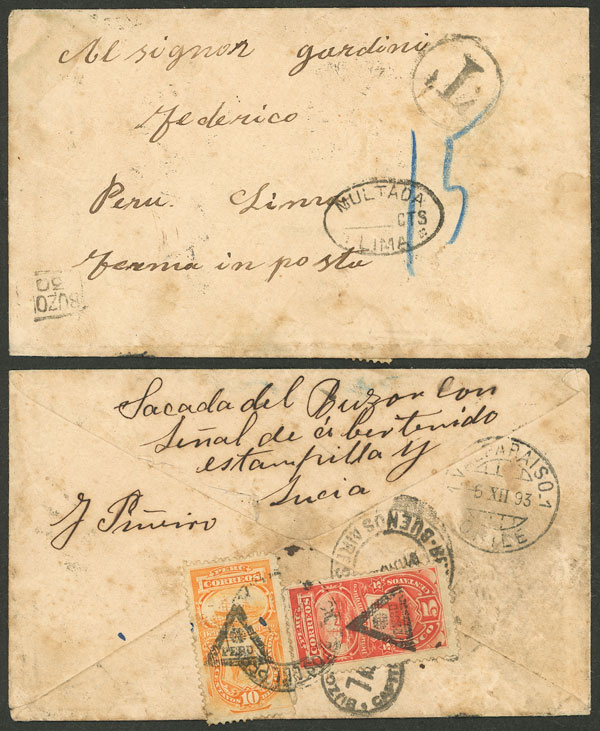 Al signor gardini
T
Federico
15
Peru Lima
MULTADA
CTS
LIMA
ferma in posta
BUZON
50
Sacada del Buzon con
Señal de
estampilla y
Sucia
J Piñeiro
VALPARAISO.1
6 XII 93
CHILE
BUENOS AIRES
PERU
CORREOS
10
PERU
CORREOS
5
CINCO
CENTAVOS
BUZONISTAS